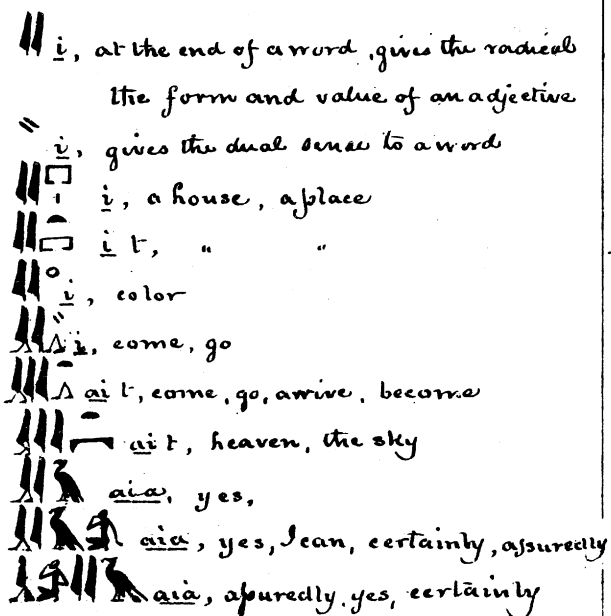 i, at the end of a word, gives the radical
the form and value of an adjective
i, gives the dual sense to a word
i, a house, a place
i t, " "
i, color
i, come, go
ai t, come, go, arrive, become
ai t, heaven, the sky
aia, yes,
aia, yes, I can, certainly, assuredly
aia, assuredly, yes, certainly